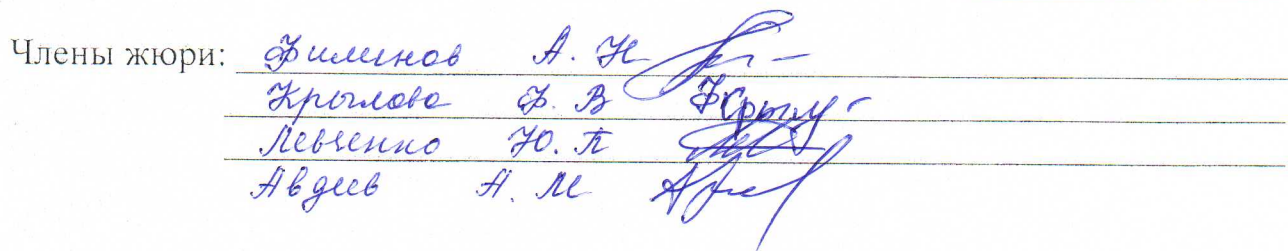 Члены жюри: Филинов А. Н
Крылова Ф. В
Левченко Ю. П
Авдеев А. М